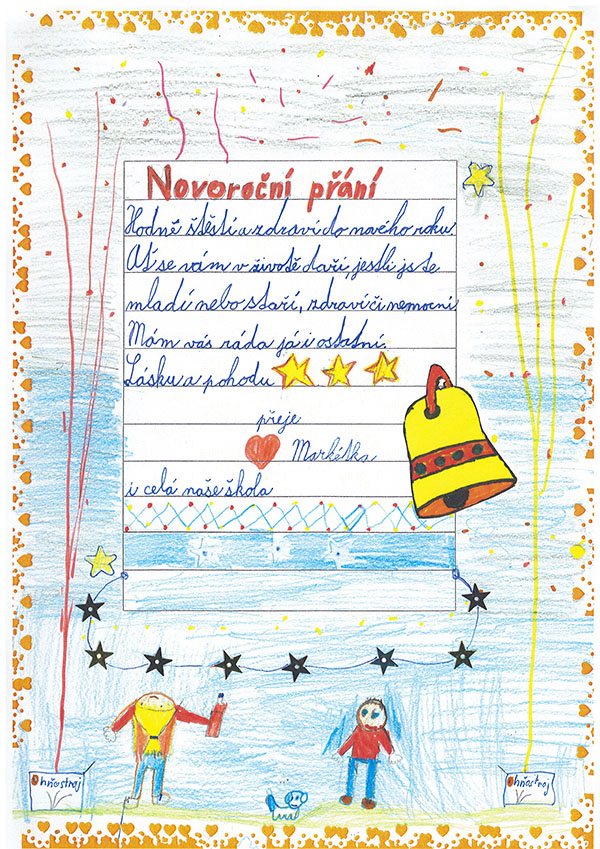 Novoroční přání
Hodně štěstí a zdraví do nového roku.
Ať se vám v životě daří, jestli jste
mladí nebo staří, zdraví či nemocní.
Mám vás ráda já i ostatní.
Lásku a pohodu
přeje
Markétka
i celá naše škola
Ohňostroj
Ohňostroj